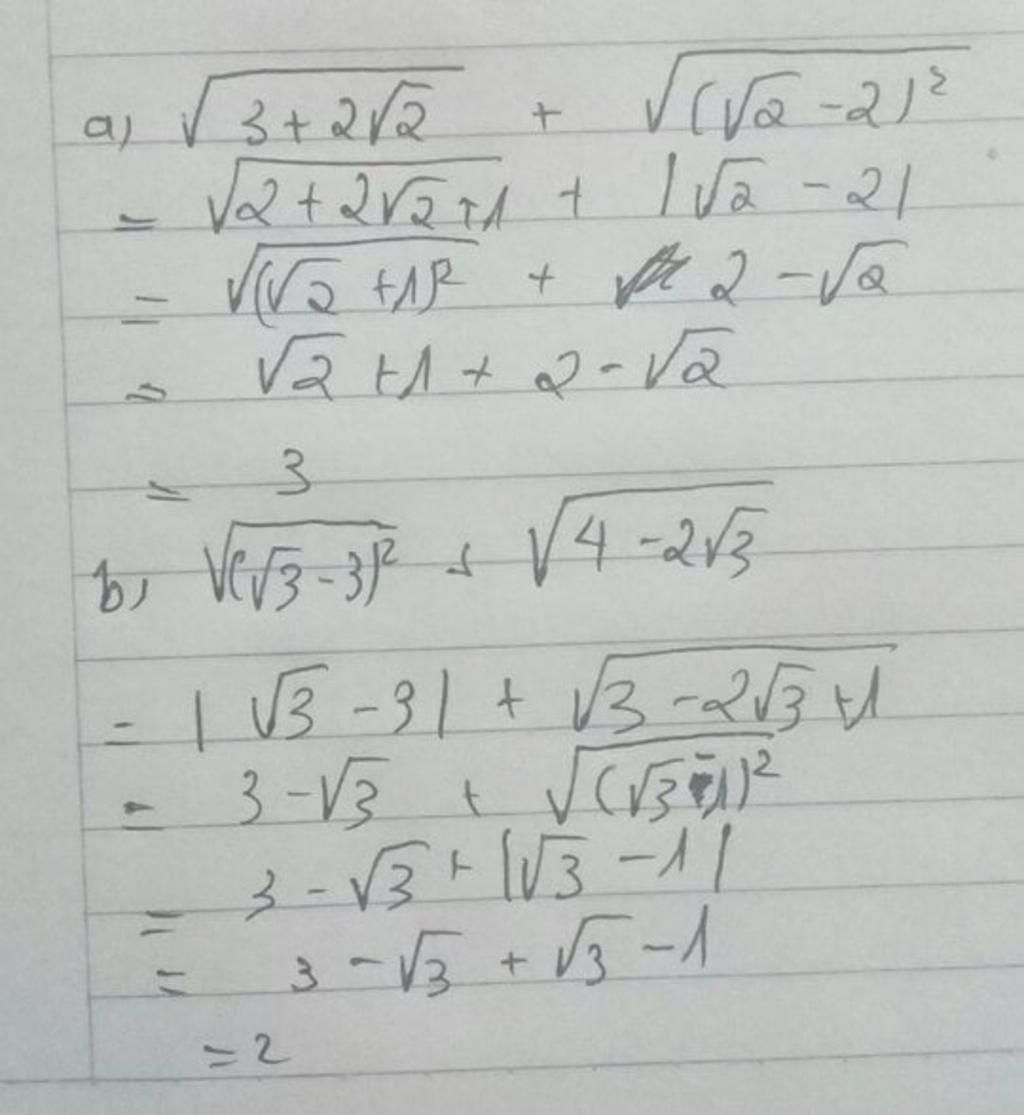 a) √(3+2√2) + √((√2-2)²)
= √(2+2√2+1) + |√2-2|
= √((√2+1)²) + 2-√2
= √2+1+2-√2
= 3
b) √((√3-3)²) + √(4-2√3)
= |√3-3| + √(3-2√3+1)
= 3-√3 + √((√3-1)²)
= 3-√3+|√3-1|
= 3-√3+√3-1
=2